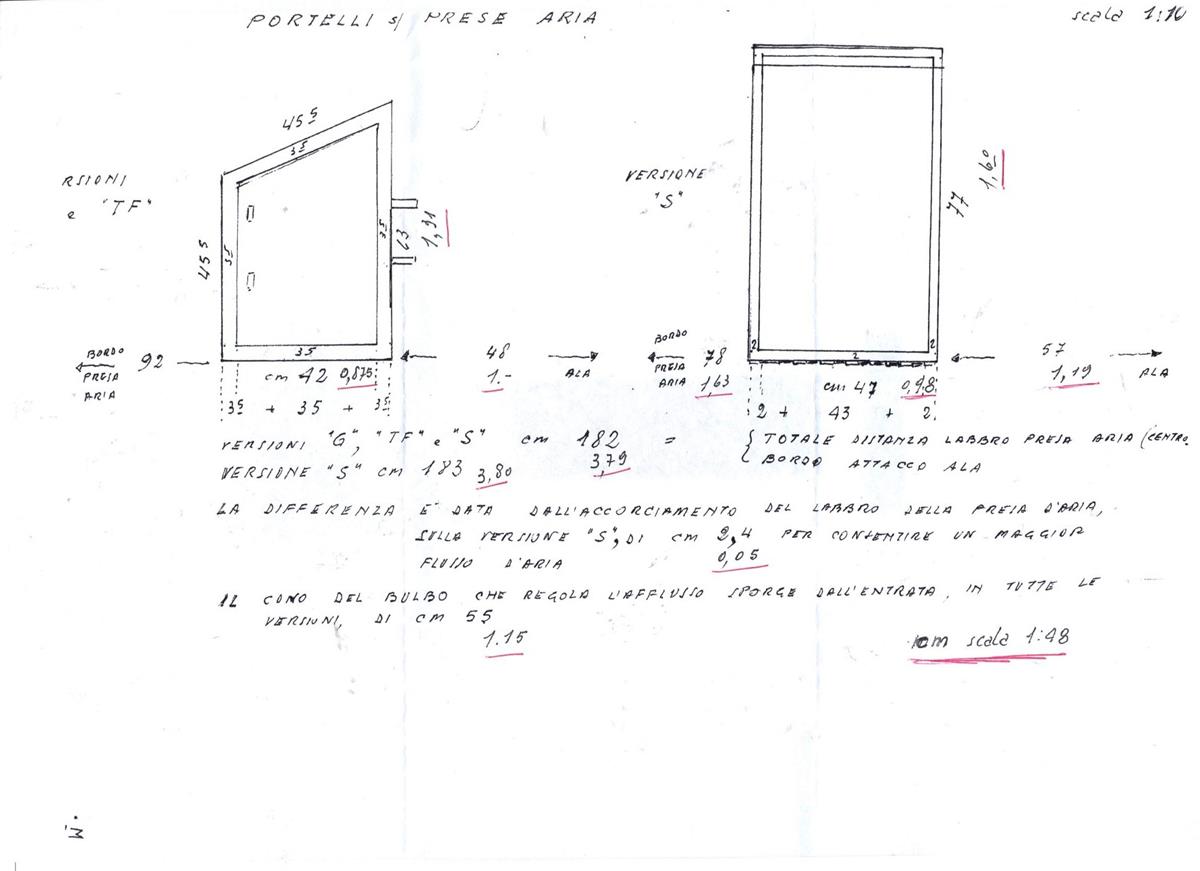 PORTELLI s/ PRESE ARIA
scala 1:10
RSIONI
e "TF"
45 5
35
45 5
35
35
63
1,31
35
VERSIONE
"S"
77
1,60
2 2 2
BORDO
PRESA
ARIA
92
cm 42 0,875
48
1.-
ALA
BORDO
PRESA
ARIA
78
1,63
cm 47 0,98
57
1,19
ALA
35 + 35 + 35
2 + 43 + 2
VERSIONI "G", "TF" e "S" cm 182 = { TOTALE DISTANZA LABBRO PRESA ARIA (CENTRO
3,79
VERSIONE "S" cm 183 3,80 { BORDO ATTACCO ALA
LA DIFFERENZA E' DATA DALL'ACCORCIAMENTO DEL LABBRO DELLA PRESA D'ARIA,
SULLA VERSIONE "S", DI cm 2,4 PER CONSENTIRE UN MAGGIOR
0,05
FLUSSO D'ARIA
IL CONO DEL BULBO CHE REGOLA L'AFFLUSSO SPORGE DALL'ENTRATA, IN TUTTE LE
VERSIONI, DI cm 55
1.15
cm scala 1:48